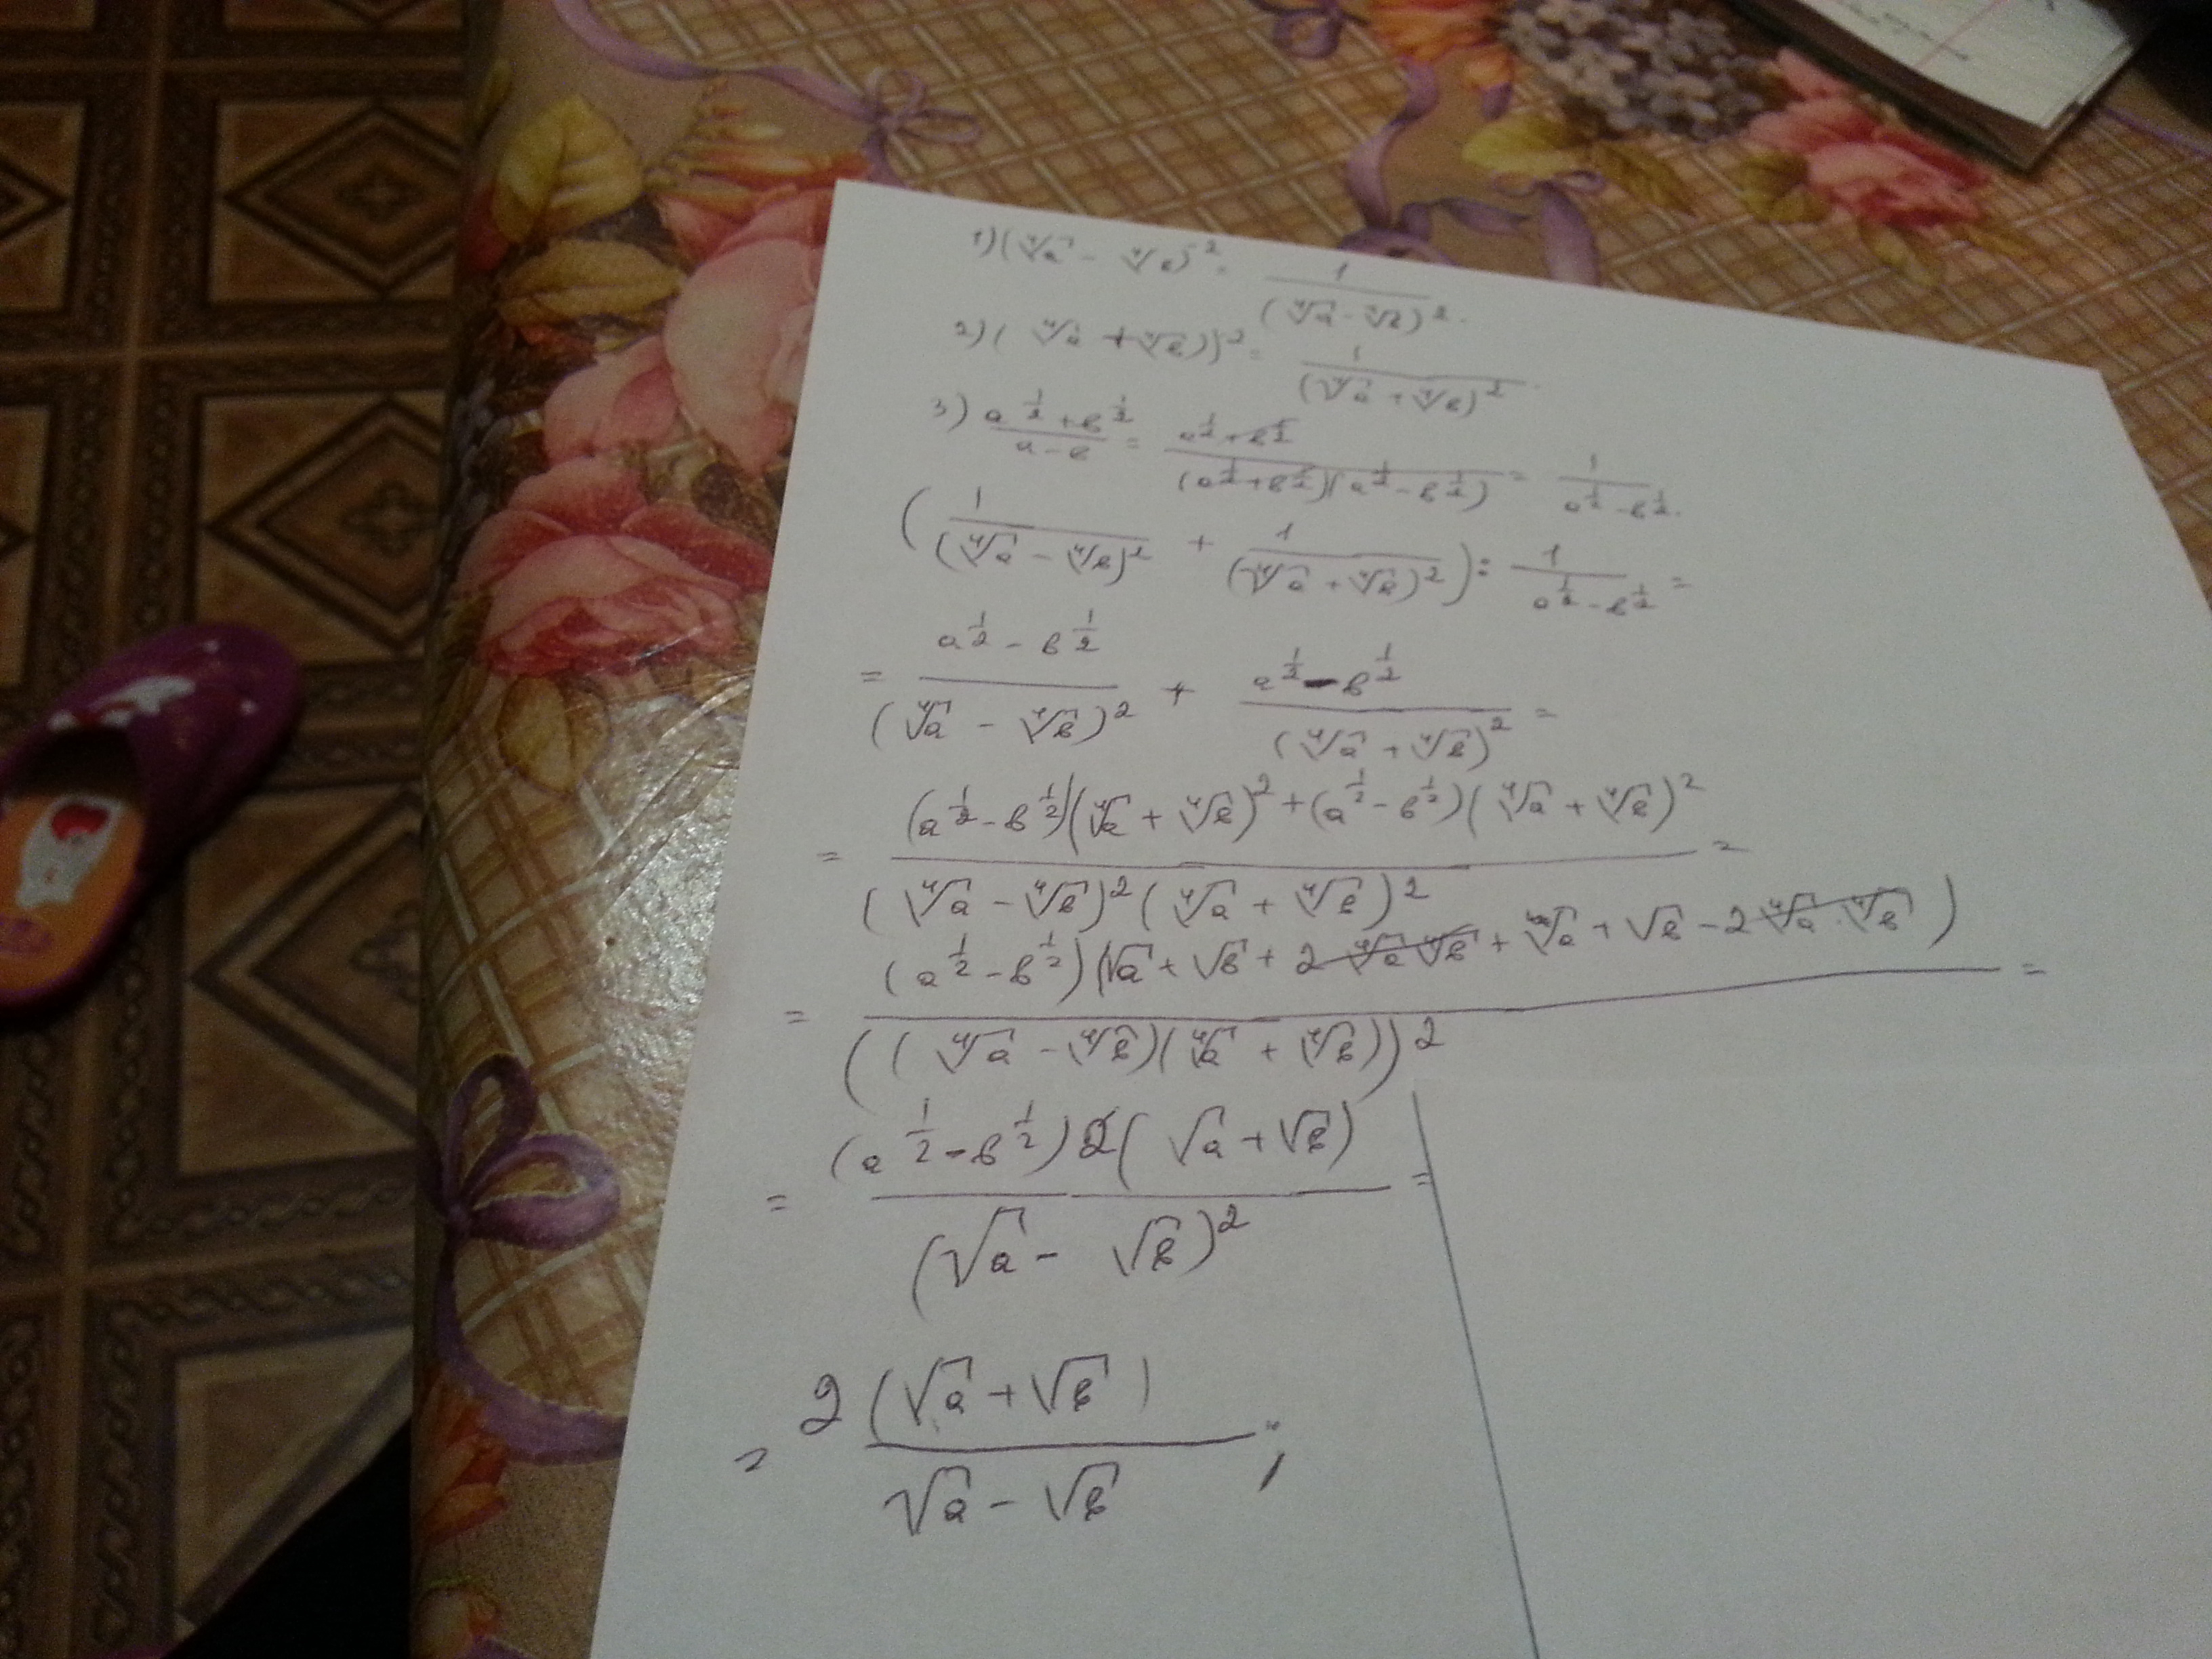 1) (⁴√a - ⁴√в)⁻² = 1/(⁴√a - ⁴√в)².
2) (⁴√a + ⁴√в))⁻² = 1/(⁴√a + ⁴√в)².
3) (a^(1/2) + в^(1/2))/(a - в) = (a^(1/2) + в^(1/2))/((a^(1/2) + в^(1/2))(a^(1/2) - в^(1/2))) = 1/(a^(1/2) - в^(1/2)).
(1/(⁴√a - ⁴√в)² + 1/(⁴√a + ⁴√в)²) : 1/(a^(1/2) - в^(1/2)) =
= (a^(1/2) - в^(1/2))/(⁴√a - ⁴√в)² + (a^(1/2) - в^(1/2))/(⁴√a + ⁴√в)² =
= ((a^(1/2) - в^(1/2))(⁴√a + ⁴√в)² + (a^(1/2) - в^(1/2))(⁴√a + ⁴√в)²)/((⁴√a - ⁴√в)²(⁴√a + ⁴√в)²) =
= (a^(1/2) - в^(1/2))(√a + √в + 2 ⁴√a ⁴√в + √a + √в - 2 ⁴√a · ⁴√в)/((⁴√a - ⁴√в)(⁴√a + ⁴√в))² =
= (a^(1/2) - в^(1/2)) 2(√a + √в)/(√a - √в)² =
= 2(√a + √в)/(√a - √в) ;